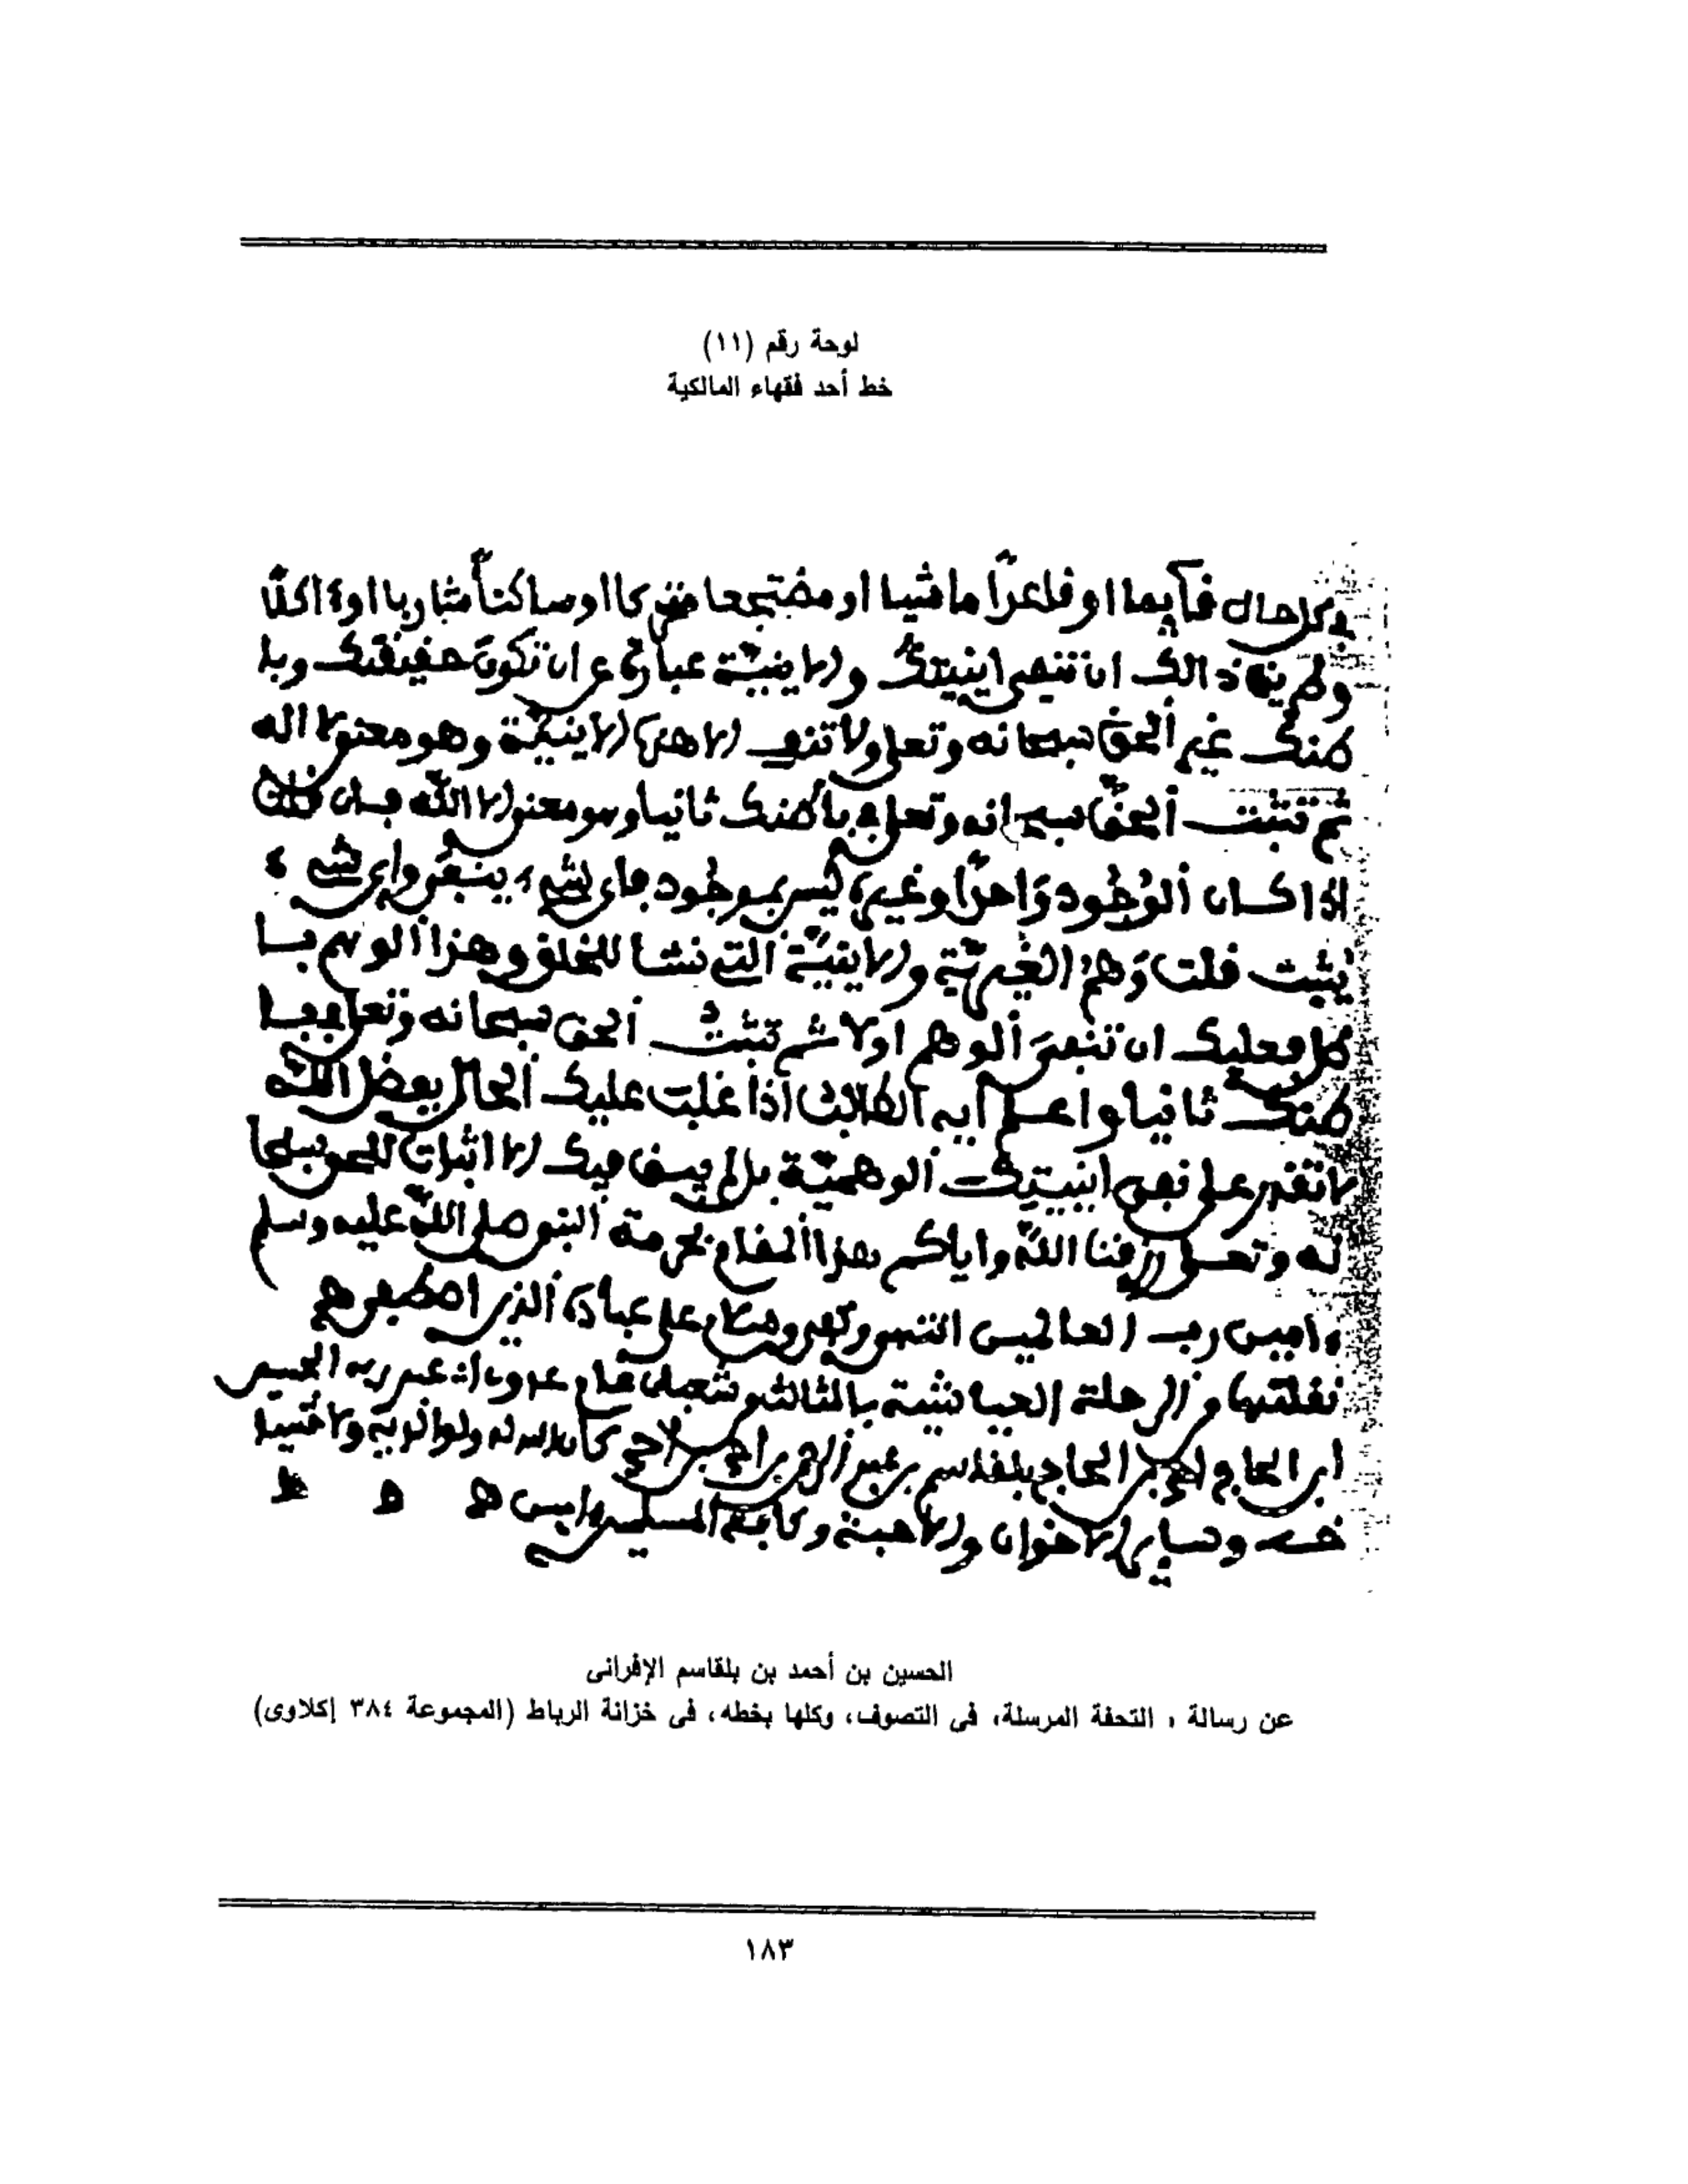 لوحة رقم (١١)
خط أحد فقهاء المالكية
كل حال قآيما او قاعدًا ماشيا او مضتجعا متحركا او ساكنًا شاربا او ءاكلًا
ولم ذالك ان تنفى اينيتك والاينيّة عبارة عن ان تكون حقيقتك وبا
طنك غير ألحق سبحانه وتعلى ولا تنف الا هذه الاينيّة وهو معنى لا اله
ثم تثبت ألحقّ سبحانه وتعلى فى باطنك ثانيا وهو معنى الا اللّه فان قلت
اذا كان ألوُجُود وَاحدًا وغيره ليس بموجُود فاى شىء ينفى واى شىء
يثبت قلت وَهمُ الغيريّة والاينيّة ألتى نشا للخلق وهذا ألوهم با
طل فعليك ان تنفىَ ألوهم اولا ثم تثبت ألحق سبحانه وتعلى فى با
طنك ثانيا واعلم أيه الطالب اذا غلبت عليك ألحال بفضل اللّه
لا تقدر على نفى اينيتك ألوهميّة بل لم يبق فيك الا اثبات للحق سبحا
نه وتعلى رزقنا اللّه واياكم هذا ألمقام بحرمة ألنبى صلى اللّه عليه وسلم
ءامين رب العالميں انتهى وكفى وسلام على عباده ألذين اصطفى هـ
نقلتها من ألرحلة العياشية بالثالث من شعبان عام عبد ربه الحسين
ابن الحاج احمد بن الحاج بلقاسم بن كان الله له ولوالديه ولاشيا
خه وساير الاخوان والاحبة وكافة المسلمين ءامين هـ هـ هـ
الحسين بن أحمد بن بلقاسم الإفرانى
عن رسالة ، التحفة المرسلة، فى التصوف، وكلها بخطه، فى خزانة الرباط (المجموعة ٣٨٤ إكلاوى)
١٨٣